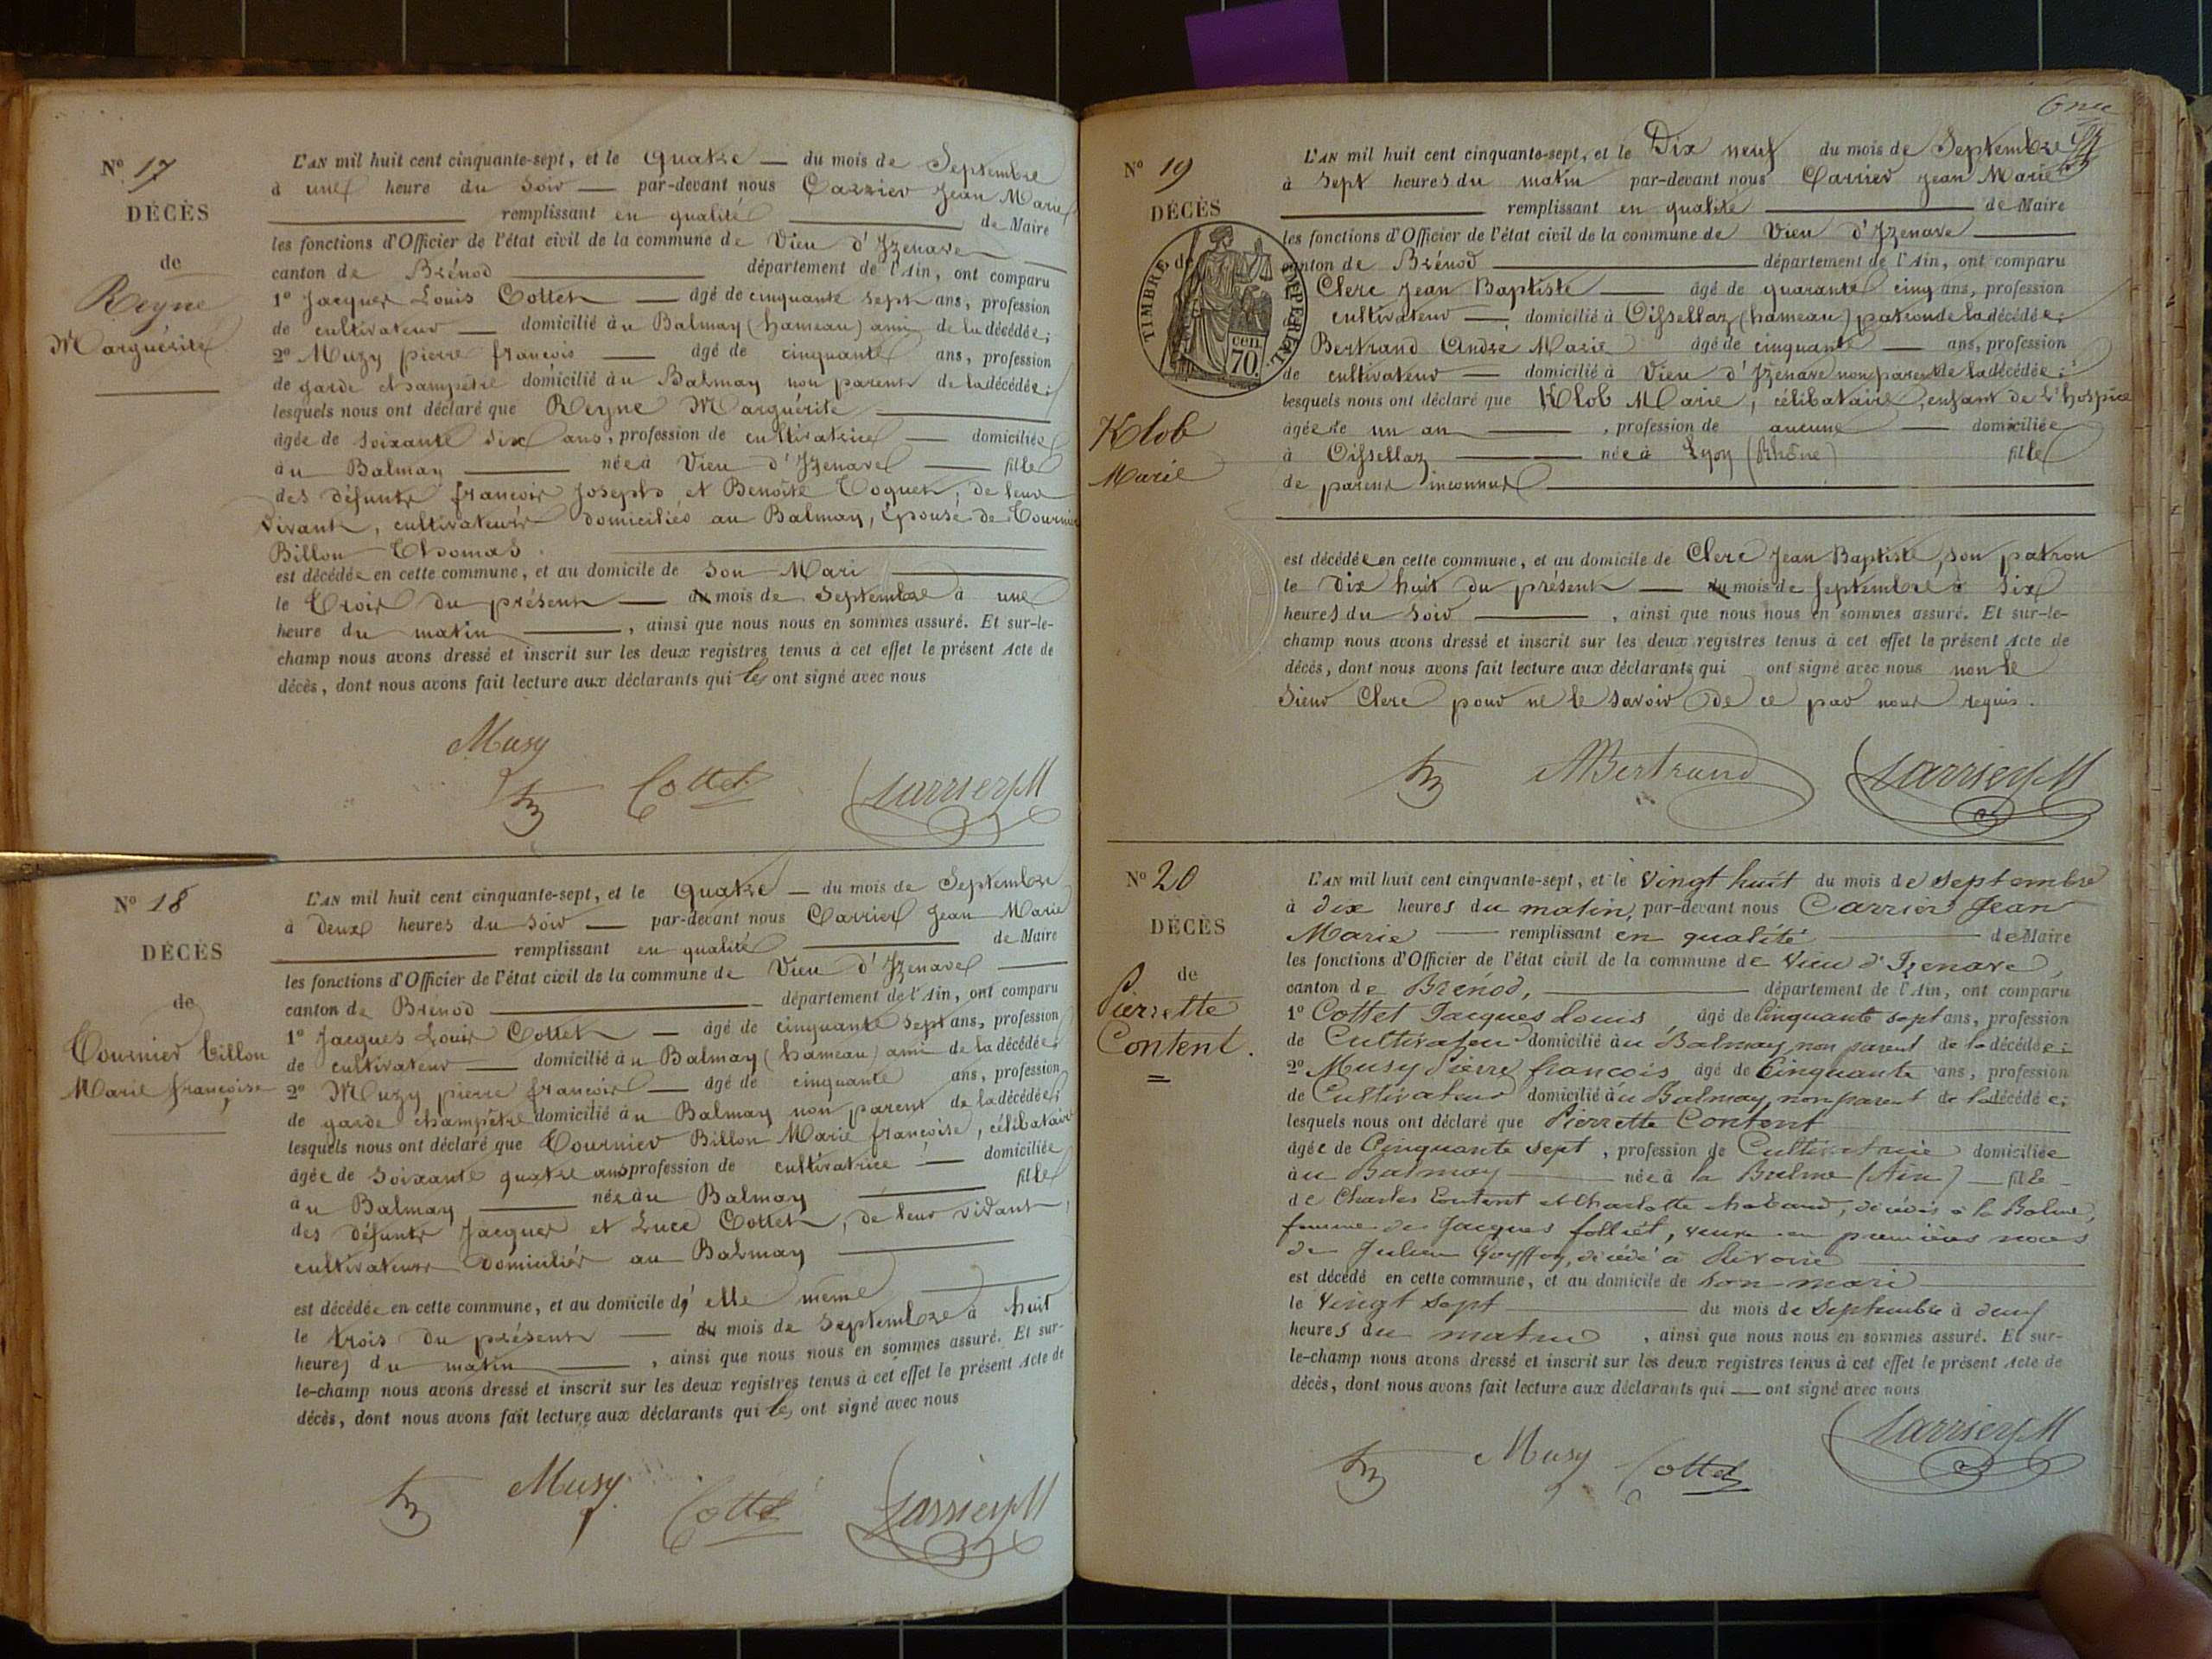 Nº 17
DÉCÈS
de
Reyne
Marguérite
L'AN mil huit cent cinquante-sept, et le quatre du mois de Septembre
à une heure du soir par-devant nous Carrier Jean Marie
remplissant en qualité de Maire
les fonctions d'Officier de l'état civil de la commune de Vieu d'Izenave
canton de Brénod département de l'Ain, ont comparu
1º Jacques Louis Cottet âgé de cinquante sept ans, profession
de cultivateur domicilié au Balmay (hameau) ami de la décédée;
2º Muzy pierre françois âgé de cinquante ans, profession
de garde champêtre domicilié au Balmay non parent de la décédée;
lesquels nous ont déclaré que Reyne Marguérite
âgée de soixante six ans, profession de cultivatrice domiciliée
au Balmay née à Vieu d'Izenave fille
des défunts françois Joseph et Benoite Coquet, de leur
vivant, cultivateurs domiciliés au Balmay, épouse de Tournier
Billon Thomas.
est décédée en cette commune, et au domicile de son Mari
le trois du présent du mois de Septembre à une
heure du matin, ainsi que nous nous en sommes assuré. Et sur-le-
champ nous avons dressé et inscrit sur les deux registres tenus à cet effet le présent Acte de
décès, dont nous avons fait lecture aux déclarants qui les ont signé avec nous
Musy
Cottet
Carrier JM
Nº 18
DÉCÈS
de
Tournier billon
Marie françoise
L'AN mil huit cent cinquante-sept, et le quatre du mois de Septembre
à deux heures du soir par-devant nous Carrier Jean Marie
remplissant en qualité de Maire
les fonctions d'Officier de l'état civil de la commune de Vieu d'Izenave
canton de Brénod département de l'Ain, ont comparu
1º Jacques Louis Cottet âgé de cinquante sept ans, profession
de cultivateur domicilié au Balmay (hameau) ami de la décédée;
2º Muzy pierre françois âgé de cinquante ans, profession
de garde champêtre domicilié au Balmay non parent de la décédée;
lesquels nous ont déclaré que Tournier Billon Marie françoise, célibataire
âgée de soixante quatre ans profession de cultivatrice domiciliée
au Balmay née au Balmay fille
des défunts Jacques et Luce Cottet, de leur vivant,
cultivateurs domiciliés au Balmay
est décédée en cette commune, et au domicile d'elle même
le trois du présent du mois de Septembre à huit
heures du matin, ainsi que nous nous en sommes assuré. Et sur-
le-champ nous avons dressé et inscrit sur les deux registres tenus à cet effet le présent Acte de
décès, dont nous avons fait lecture aux déclarants qui les ont signé avec nous
Musy
Cottet
Carrier JM
Nº 19
DÉCÈS
TIMBRE IMPERIAL
cen.
70.
Klob
Marie
L'AN mil huit cent cinquante-sept, et le Dix neuf du mois de Septembre
à sept heures du matin par-devant nous Carrier Jean Marie
remplissant en qualité de Maire
les fonctions d'Officier de l'état civil de la commune de Vieu d'Izenave
canton de Brénod département de l'Ain, ont comparu
Clerc Jean Baptiste âgé de quarante cinq ans, profession
cultivateur domicilié à Oissellaz (hameau) patron de la décédée;
Bertrand André Marie âgé de cinquante ans, profession
de cultivateur domicilié à Vieu d'Izenave non parent de la décédée;
lesquels nous ont déclaré que Klob Marie, célibataire, enfant de l'hospice
âgée de un an, profession de aucune domiciliée
à Oissellaz née à Lyon (Rhône) fille
de parens inconnus
est décédée en cette commune, et au domicile de Clerc Jean Baptiste, son patron
le dix huit du présent du mois de septembre à six
heures du soir, ainsi que nous nous en sommes assuré. Et sur-le-
champ nous avons dressé et inscrit sur les deux registres tenus à cet effet le présent Acte de
décès, dont nous avons fait lecture aux déclarants qui ont signé avec nous non le
sieur Clerc pour ne le savoir de ce par nous requis.
ABertrand
Carrier JM
Nº 20
DÉCÈS
de
Pierrette
Content.
L'AN mil huit cent cinquante-sept, et le vingt huit du mois de septembre
à dix heures du matin, par-devant nous Carrier Jean
Marie remplissant en qualité de Maire
les fonctions d'Officier de l'état civil de la commune de Vieu d'Izenave,
canton de Brénod, département de l'Ain, ont comparu
1º Cottet Jacques Louis âgé de Cinquante sept ans, profession
de Cultivateur domicilié au Balmay non parent de la décédée;
2º Musy Pierre françois âgé de Cinquante ans, profession
de Cultivateur domicilié au Balmay non parent de la décédée;
lesquels nous ont déclaré que Pierrette Content
âgée de Cinquante sept, profession de Cultivatrice domiciliée
au Balmay née à la Balme (Ain) fille
de Charles Content et Charlotte, décédés à la Balme,
femme de Jacques folliet, veuve en premières noces
de Julien Goyffon, décédé à
est décédé en cette commune, et au domicile de son mari
le vingt sept du mois de Septembre à
heures du matin, ainsi que nous nous en sommes assuré. Et sur-
le-champ nous avons dressé et inscrit sur les deux registres tenus à cet effet le présent Acte de
décès, dont nous avons fait lecture aux déclarants qui ont signé avec nous
Musy
Cottet
Carrier JM